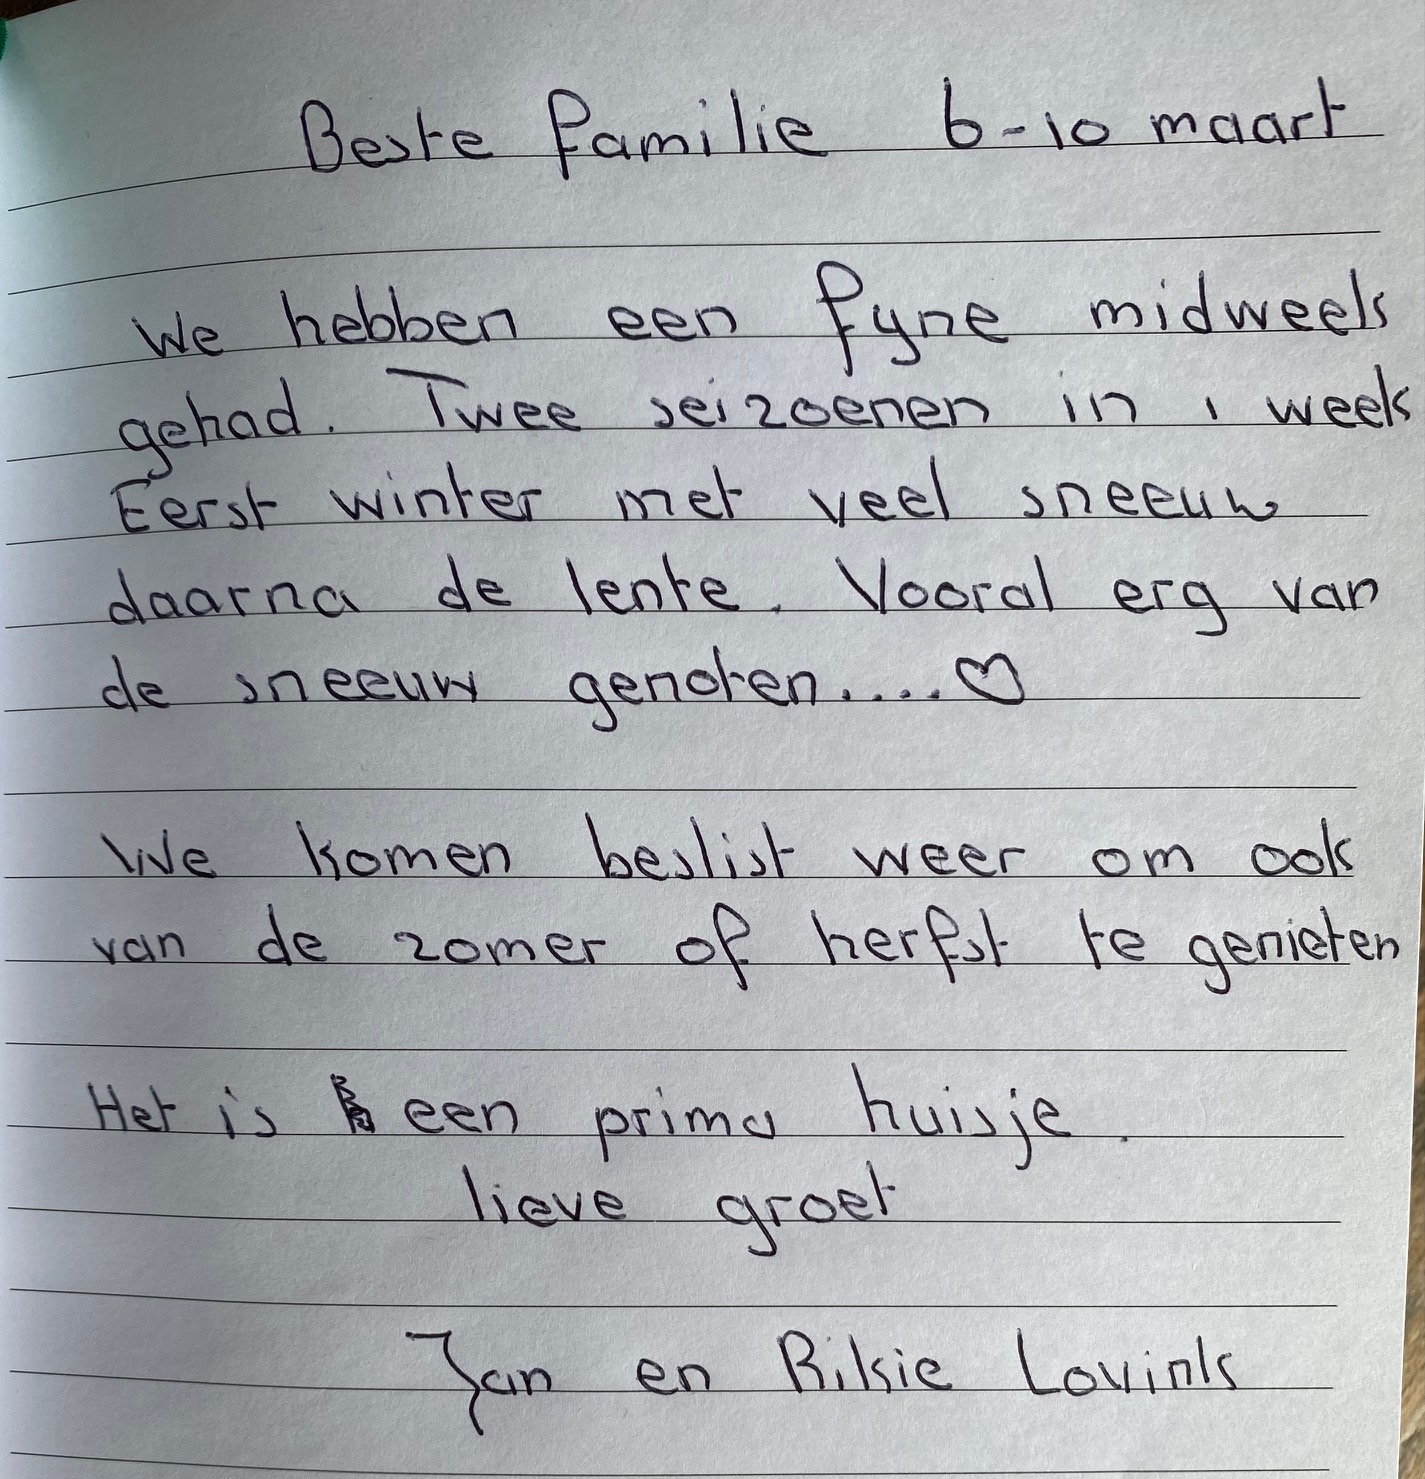 Beste familie 6-10 maart
We hebben een fyne midweek
gehad. Twee seizoenen in 1 week
Eerst winter met veel sneeuw
daarna de lente. Vooral erg van
de sneeuw genoten....♡
We komen beslist weer om ook
van de zomer of herfst te genieten
Het is een prima huisje.
lieve groet
Jan en Rikie Lovink